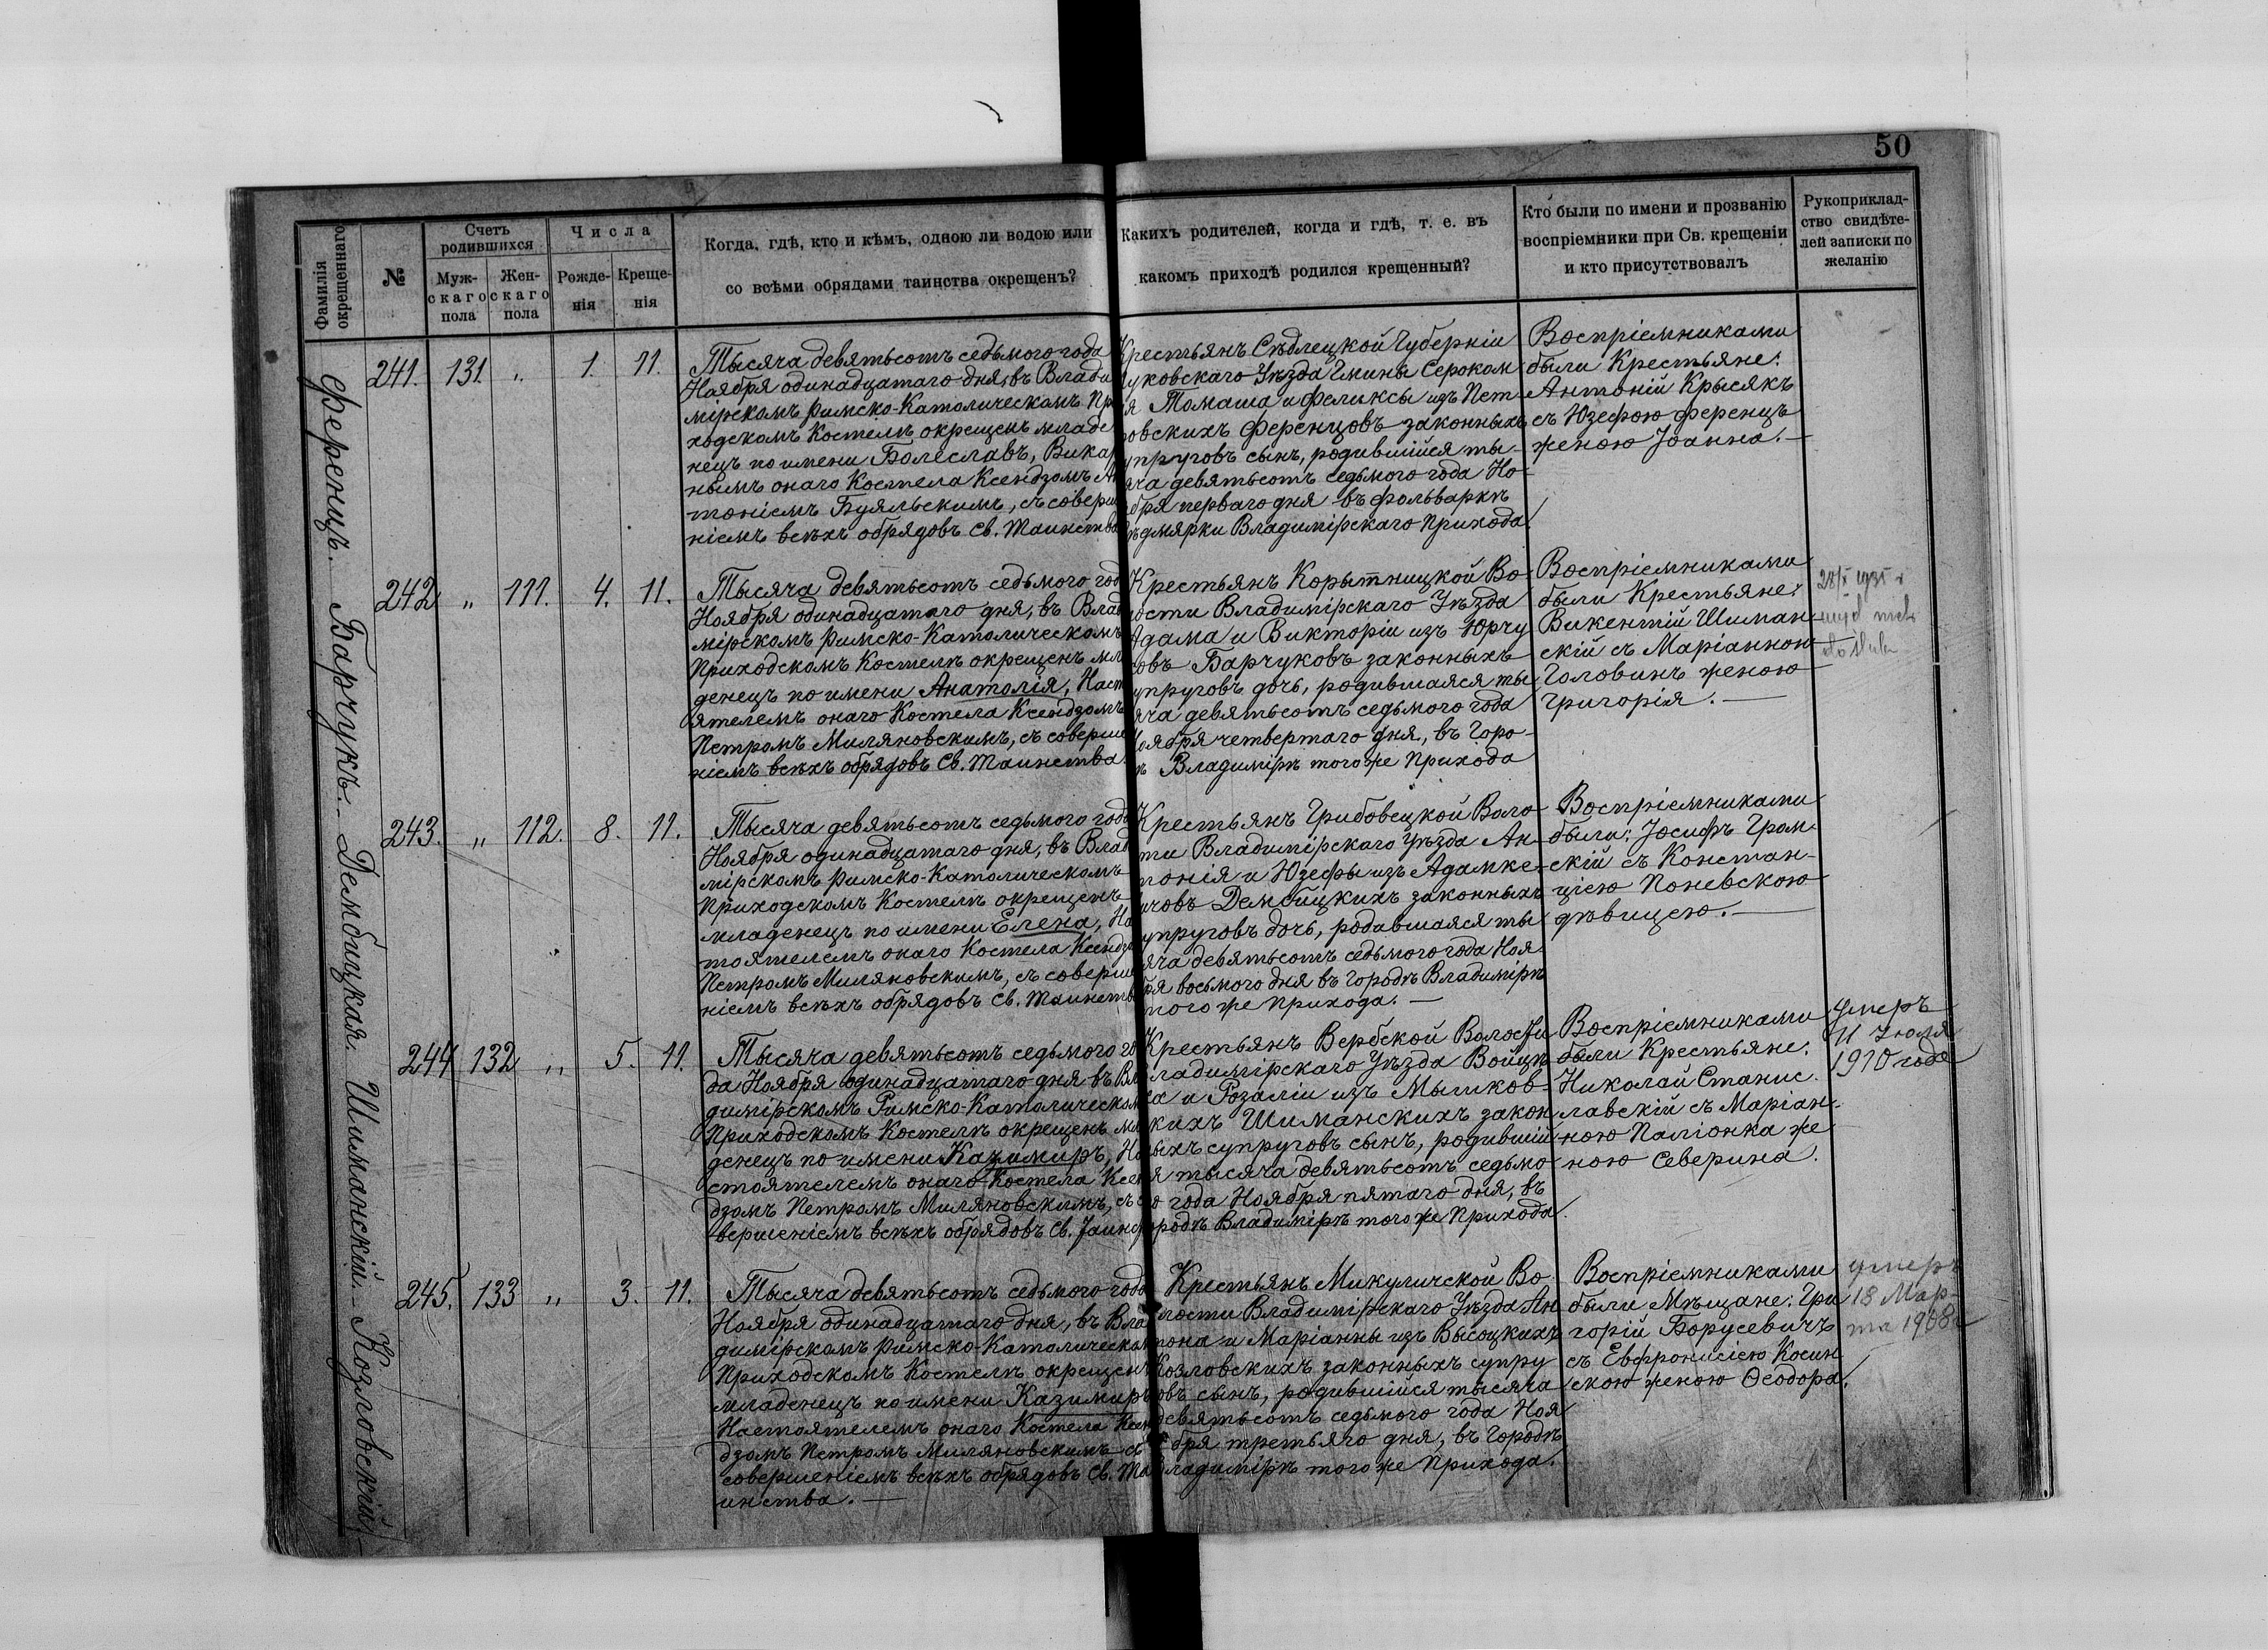 50
Фамилія
окрещеннаго
№
Счетъ
родившихся
Муж-
скаго
пола
Жен-
скаго
пола
Числа
Рожде-
нія
Креще-
нія
Когда, гдѣ, кто и кѣмъ, одною ли водою или
со всѣми обрядами таинства окрещенъ?
Какихъ родителей, когда и гдѣ, т. е. въ
какомъ приходѣ родился крещенный?
Кто были по имени и прозванію
воспріемники при Св. крещеніи
и кто присутствовалъ
Рукоприклад-
ство свидѣте-
лей записки по
желанію
Ференцъ. Барчукъ. - Дембицкая. Шиманскій. - Козловскій
241. 131. „ 1. 11.
Тысяча девятьсотъ седьмого года
Ноября одинадцатаго дня, въ Влади
мірскомъ Римско-Католическомъ Пр
ходскомъ Костелѣ окрещенъ младе
нецъ по имени Болеславъ, Викар
нымъ онаго Костела Ксендзомъ Ан
тоніемъ Буяльскимъ, съ соверше
ніемъ всѣхъ обрядовъ Св. Таинства
Крестьянъ Сѣдлецкой Губерніи
Луковскаго Уѣзда Гмины Сероком
ля Томаша и Феликсы изъ Пет-
ровскихъ Ференцовъ законныхъ
супруговъ сынъ, родившійся ты-
сяча девятьсотъ седьмого года Но-
ября перваго дня въ фольваркѣ
ѣдмярки Владимірскаго Прихода.
Воспріемниками
были Крестьяне:
Антоній Крысякъ
съ Юзефою Ференцъ
женою Іоанна. —
242 „ 111. 4. 11.
Тысяча девятьсотъ седьмого год
Ноября одинадцатаго дня, въ Влад
мірскомъ Римско-Католическомъ
Приходскомъ Костелѣ окрещенъ мла
денецъ по имени Анатолія, Наст
оятелемъ онаго Костела Ксендзомъ
Петромъ Миляновскимъ, съ соверше
ніемъ всѣхъ обрядовъ Св. Таинства.
Крестьянъ Корытницкой Во-
лости Владимірскаго Уѣзда
Адама и Викторіи изъ Юрчу
ковъ Барчуковъ законныхъ
супруговъ дочь, родившаяся ты
сяча девятьсотъ седьмого года
Ноября четвертаго дня, въ Горо-
дѣ Владимірѣ того же Прихода
Воспріемниками
были Крестьяне:
Викентій Шиман-
скій съ Маріанною
Головинъ женою
Григорія. —
243. „ 112. 8. 11.
Тысяча девятьсотъ седьмого года
Ноября одинадцатаго дня, въ Влад
мірскомъ Римско-Католическомъ
Приходскомъ Костелѣ окрещенъ
младенецъ по имени Елена, На
тоятелемъ онаго Костела Ксендз
Петромъ Миляновскимъ, съ соверше
ніемъ всѣхъ обрядовъ Св. Таинства
Крестьянъ Грибовецкой Воло
сти Владимірскаго Уѣзда Ан-
тонія и Юзефы изъ Адамке-
ичовъ Дембицкихъ законныхъ
супруговъ дочь, родавшаяся ты
сяча девятьсотъ седьмого года Ноя
бря восьмого дня въ Городѣ Владимірѣ
того же Прихода. —
Воспріемниками
были: Іосифъ Гром-
скій съ Констан-
цією Поневскою
дѣвицею. —
244 132 „ 5. 11.
Тысяча девятьсотъ седьмого го
да Ноября одинадцатаго дня въ Вла
димірскомъ Римско-Католическом
Приходскомъ Костелѣ окрещенъ мла
денецъ по имени Казимиръ, На
стоятелемъ онаго Костела Ксен
дзомъ Петромъ Миляновскимъ, съ со
вершеніемъ всѣхъ обрядовъ Св. Таинс
Крестьянъ Вербской Волости
Владимірскаго Уѣзда Войцѣ
ха и Розаліи изъ Мышков-
скихъ Шиманскихъ закон
ныхъ супруговъ сынъ, родившій
ся тысяча девятьсотъ седьмо
го года Ноября пятаго дня, въ
Городѣ Владимірѣ того же Прихода.
Воспріемниками
были Крестьяне:
Николай Станис.
лавскій съ Маріан-
ною Паліонка же
ною Северина.
Умеръ
11 Іюля
1910 года
245. 133 „ 3. 11.
Тысяча девятьсотъ седьмого года
Ноября одинадцатаго дня, въ Вла
димірскомъ Римско-Католическом
Приходскомъ Костелѣ окрещенъ
младенецъ по имени Казимиръ
Настоятелемъ онаго Костела Ксен
дзомъ Петромъ Миляновскимъ съ
совершеніемъ всѣхъ обрядовъ Св. Та
инства. —
Крестьянъ Микуличской Во-
лости Владимірскаго Уѣзда Ан
тона и Маріанны изъ Высоцкихъ
Козловскихъ законныхъ супру
говъ сынъ, родившійся тысяча
девятьсотъ седьмого года Ноя
бря третьяго дня, въ Городѣ
Владимірѣ того же Прихода.
Воспріемниками
были Мѣщане: Гри
горій Борусевичъ
съ Евфронисіею Косин
скою женою Ѳеодора.
умеръ
18 Мар-
та 1908